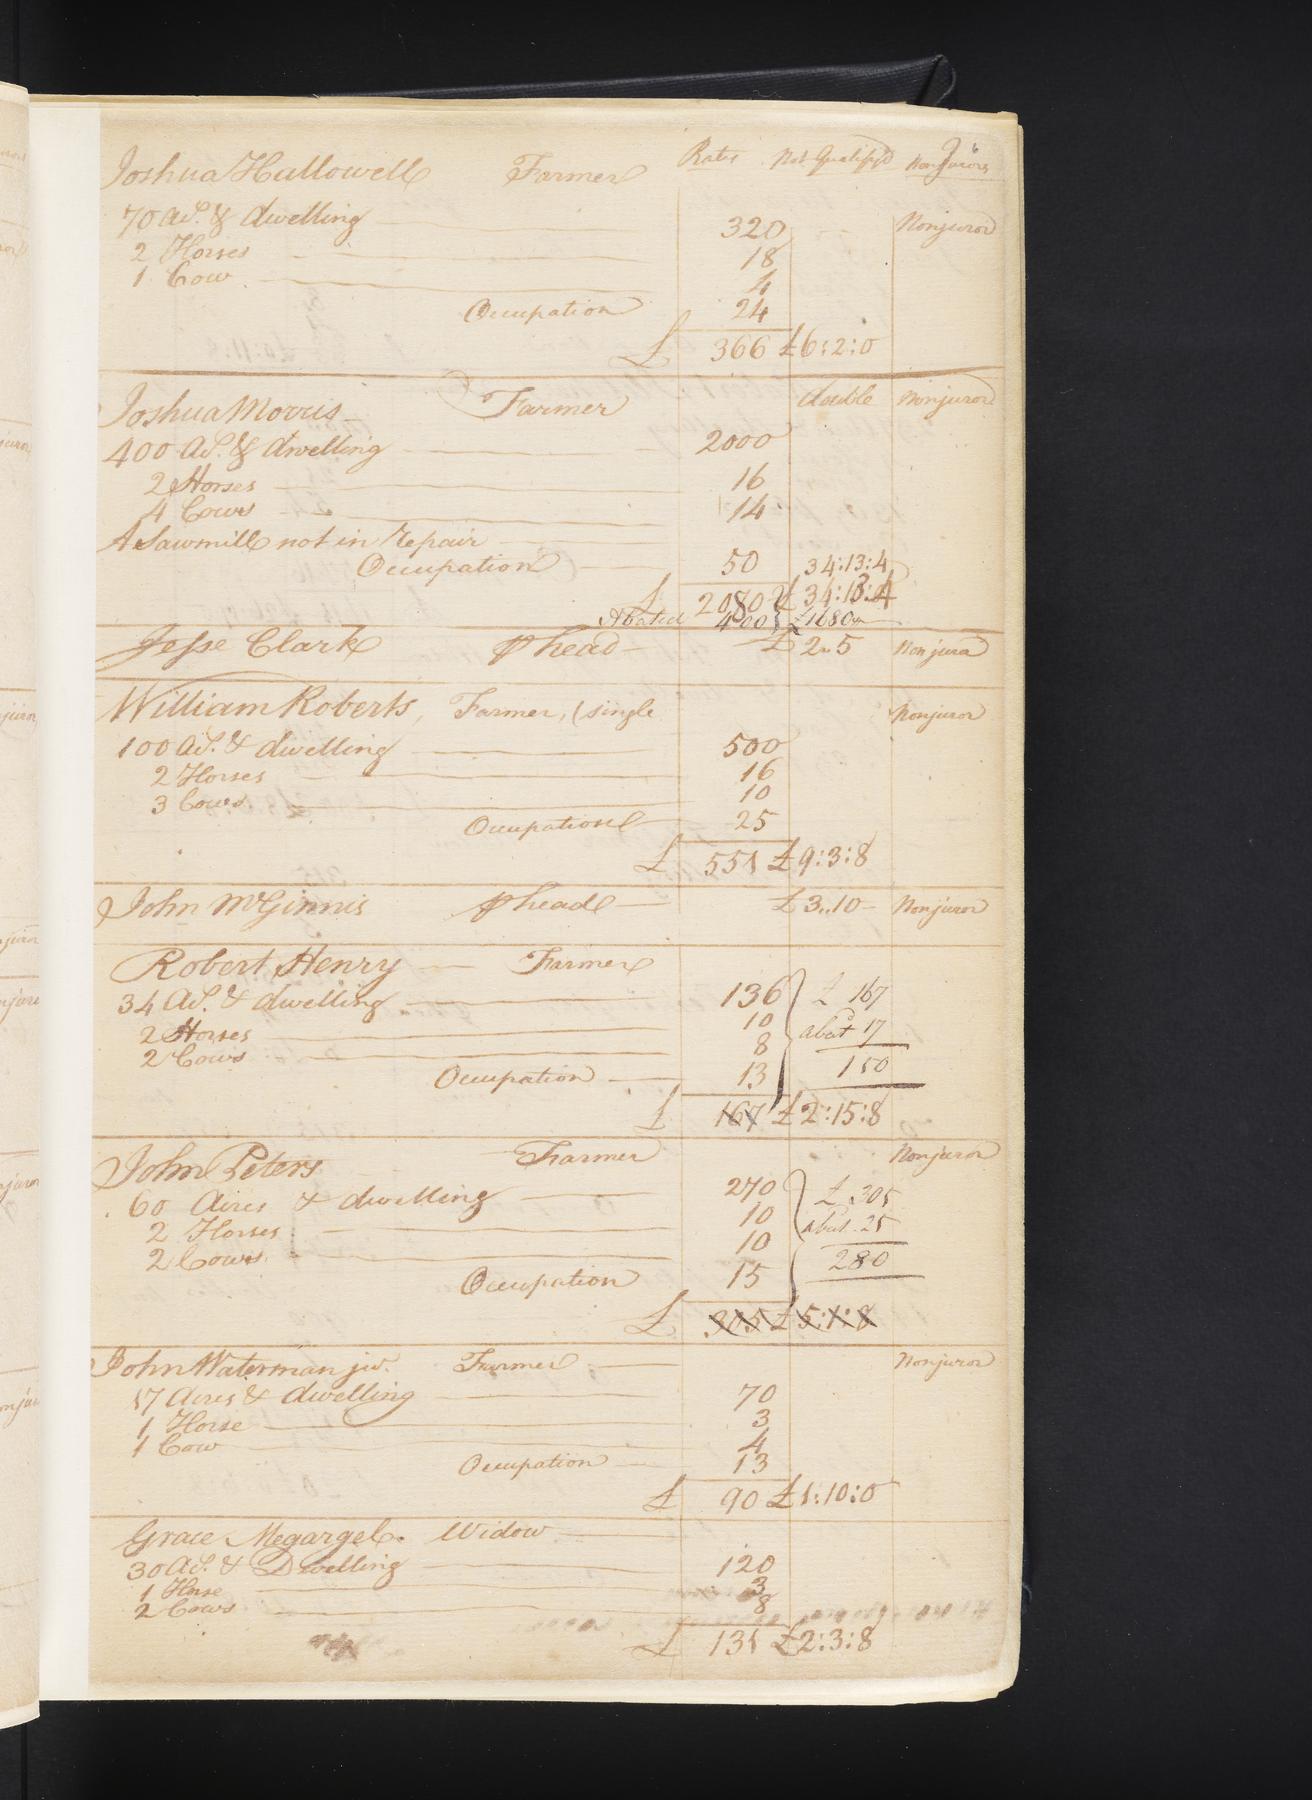 Rates Not Qualify'd Nonjurors
Joshua Hallowell Farmer
70 As. & dwelling 320 Nonjuror
2 Horses 18
1 Cow 4
Occupation 24
£ 366 £6:2:0
Joshua Morris Farmer double Nonjuror
400 As. & dwelling 2000
2 Horses 16
4 Cows 14
A Sawmill not in repair
Occupation 50 34:13:4
£ 2080 £34:13:4
Abated 400 £1680
Jesse Clark p head £2..5 Nonjura
William Roberts, Farmer, (single Nonjuror
100 As. & dwelling 500
2 Horses 16
3 Cows 10
Occupation 25
£ 551 £9:3:8
John McGinnis p head £3..10 Nonjuror
Robert Henry Farmer
34 As. & dwelling 136 £ 167
2 Horses 10 abat 17
2 Cows 8 150
Occupation 13
£ 167 £2:15:8
John Peters Farmer Nonjuror
60 Acres & dwelling 270 £ 305
2 Horses 10 abat. 25
2 Cows 10 280
Occupation 15
£ 305 £5:1:8
John Waterman jur. Farmer Nonjuror
17 Acres & dwelling 70
1 Horse 3
1 Cow 4
Occupation 13
£ 90 £1:10:0
Grace Megargel. Widow
30 As. & Dwelling 120
1 Horse 3
2 Cows 8
£ 131 £2:3:8